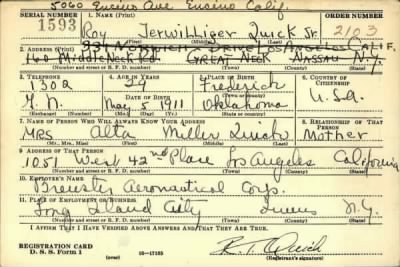 5060 Encino Ave Encino Calif.
SERIAL NUMBER 1. NAME (Print) ORDER NUMBER
1593 Roy Terwilliger Quick Sr. 2103
(First) (Middle) (Last)
2. ADDRESS (Print) DRIVE LOS ANGELES CALIF.
160 Middle Neck Rd. GREAT NECK NASSAU N.Y.
(Number and street or R. F. D. number) (Town) (County) (State)
3. TELEPHONE 4. AGE IN YEARS 5. PLACE OF BIRTH 6. COUNTRY OF CITIZENSHIP
1302 Frederick
DATE OF BIRTH
G.N. May 5 1911 Oklahoma U.S.A.
(Exchange) (Number) (Mo.) (Day) (Yr.) (State or country)
7. NAME OF PERSON WHO WILL ALWAYS KNOW YOUR ADDRESS 8. RELATIONSHIP OF THAT PERSON
MRS Alta Miller Quick Mother
(Mr., Mrs., Miss) (First) (Middle) (Last)
9. ADDRESS OF THAT PERSON
1051 West 42nd Place Los Angeles California
(Number and street or R. F. D. number) (Town) (County) (State)
10. EMPLOYER'S NAME
Brewster Aeronautical Corp.
11. PLACE OF EMPLOYMENT OR BUSINESS
Long Island City Queens N.Y.
(Number and street or R. F. D. number) (Town) (County) (State)
I AFFIRM THAT I HAVE VERIFIED ABOVE ANSWERS AND THAT THEY ARE TRUE.
REGISTRATION CARD
D. S. S. Form 1 (over) 16—17105 R. T. Quick
(Registrant's signature)